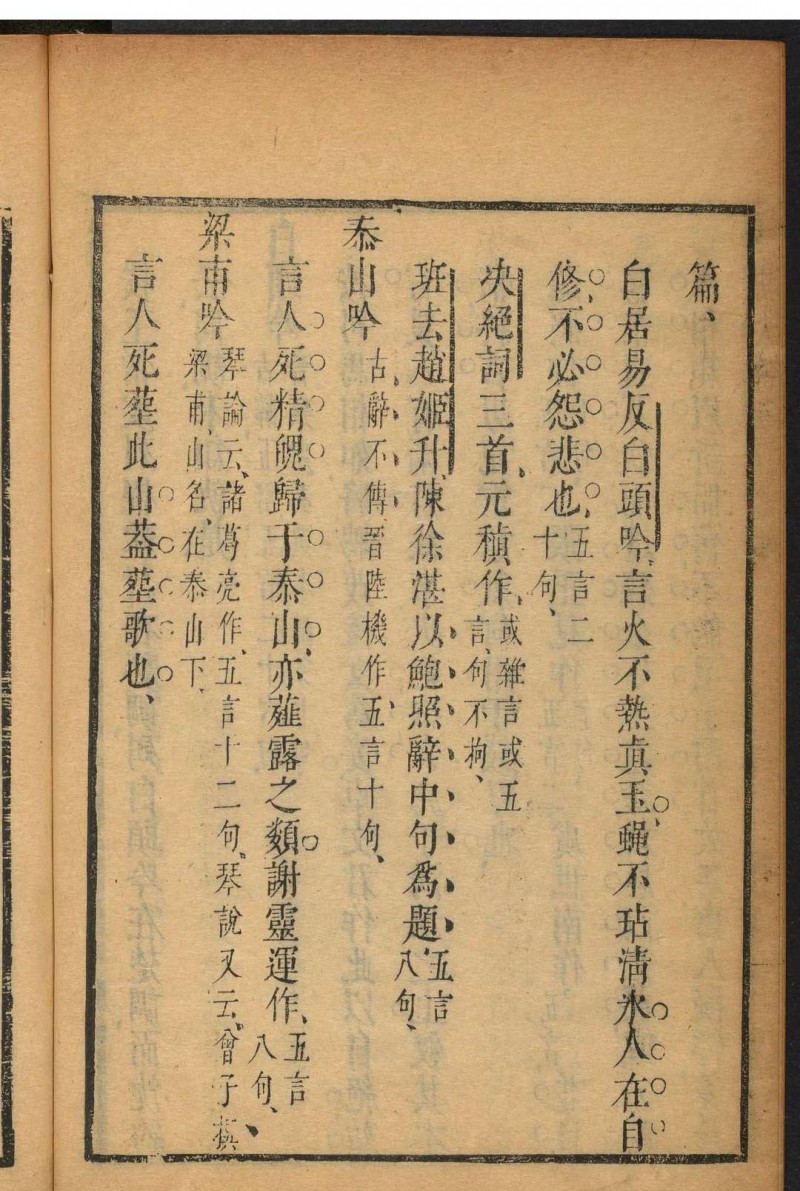 篇、
白居易反白頭吟、言火不熱真玉、蠅不玷清氷人在自
修、不必怨悲也、五言二十句、
決絕詞三首、元稹作、或雜言或五言、句不拘、
班去趙姬升、陳徐湛以鮑照辭中句爲題、五言八句、
泰山吟 古辭不傳、晉陸機作、五言十句、
言人死精魄歸于泰山、亦薤露之類、謝靈運作、五言八句、
梁甫吟 琴論云、諸葛亮作、五言十二句、琴說又云、曾子撰
梁甫、山名、在泰山下、
言人死葬此山、葢葬歌也、